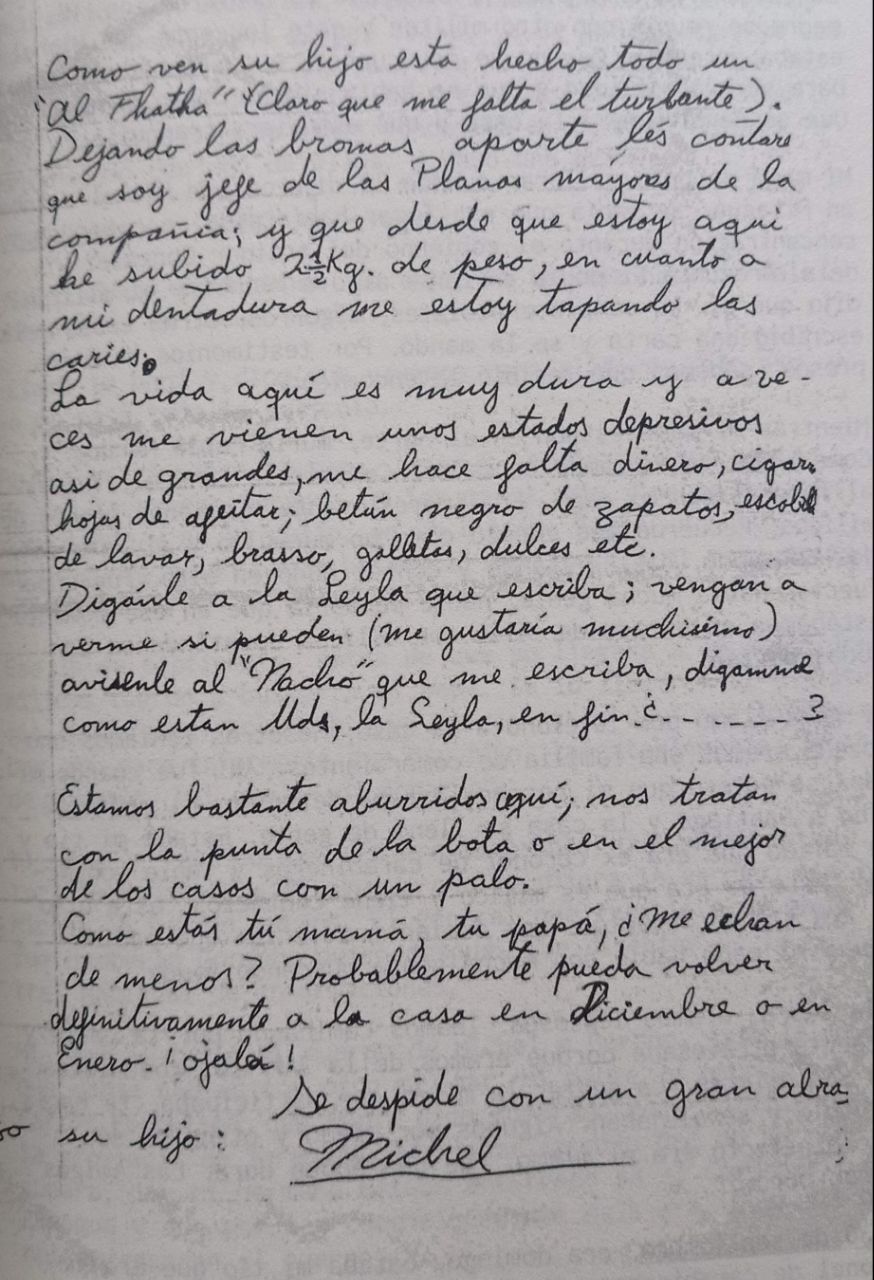 Como ven su hijo esta hecho todo un
"Al Fhatha" (Claro que me falta el turbante).
Dejando las bromas aparte les contare
que soy jefe de las Planas mayores de la
compañia; y que desde que estoy aqui
he subido 2 1/2 Kg. de peso, en cuanto a
mi dentadura me estoy tapando las
caries.
La vida aquí es muy dura y a ve-
ces me vienen unos estados depresivos
asi de grandes, me hace falta dinero, cigarr
hojas de afeitar; betún negro de zapatos, escobill
de lavar, brasso, galletas, dulces etc.
Digánle a la Leyla que escriba; vengan a
verme si pueden (me gustaría muchisimo)
avisenle al "Nacho" que me escriba, diganme
como estan Uds, la Leyla, en fin ¿- - - - - - ?
Estamos bastante aburridos aquí; nos tratan
con la punta de la bota o en el mejor
de los casos con un palo.
Como estás tú mamá, tu papá, ¿Me echan
de menos? Probablemente pueda volver
definitivamente a la casa en Diciembre o en
Enero. ¡ojalá!
Se despide con un gran abra-
zo su hijo:
Michel